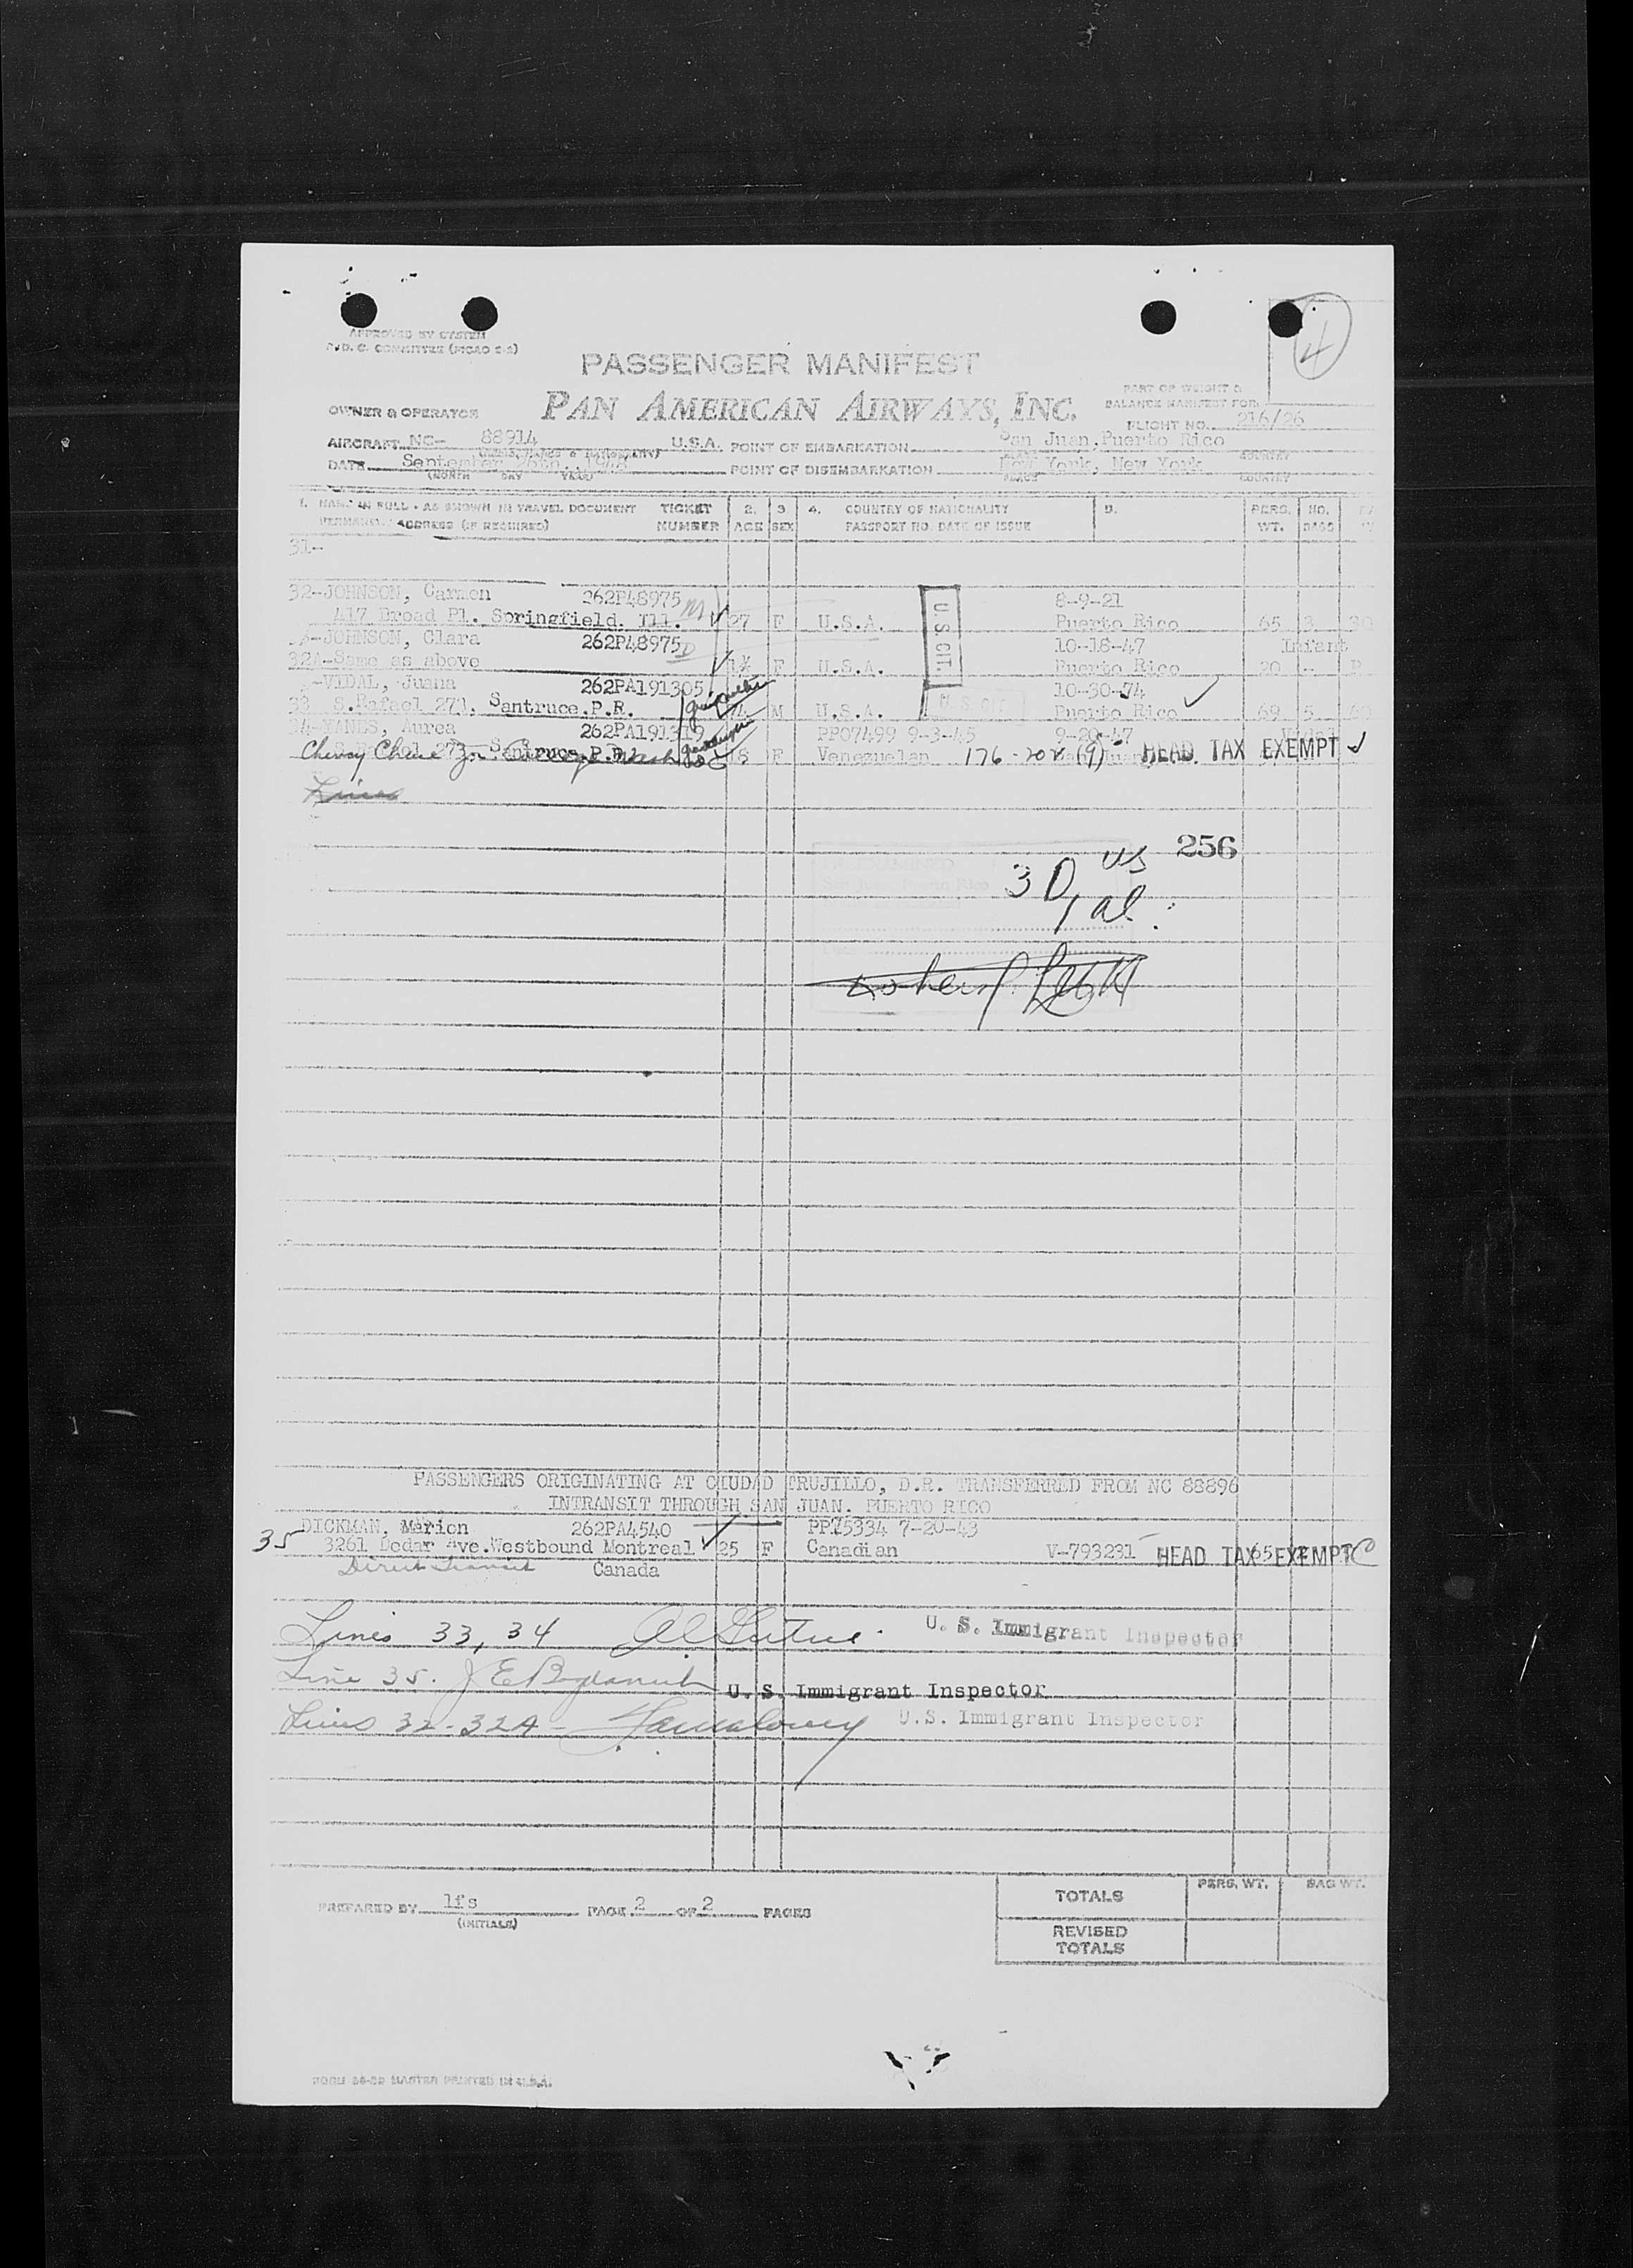 APPROVED BY SYSTEM
P.D. C. COMMITTEE (PICAO 2-2)
4
PASSENGER MANIFEST
PART OF WEIGHT &
BALANCE MANIFEST FOR
OWNER & OPERATOR PAN AMERICAN AIRWAYS, INC.
FLIGHT NO. 216/26
AIRCRAFT NC- 88914 U.S.A. POINT OF EMBARKATION San Juan, Puerto Rico
COUNTRY
DATE September 26th, 1948 POINT OF DISEMBARKATION New York, New York
(MONTH DAY YEAR) PLACE COUNTRY
1. NAME IN FULL - AS SHOWN IN TRAVEL DOCUMENT TICKET 2. 3 4. COUNTRY OF NATIONALITY 5. PERS. NO.
PERMANENT ADDRESS (IF REQUIRED) NUMBER AGE SEX PASSPORT NO. DATE OF ISSUE WT. BAGS
31-
32-JOHNSON, Carmen 262P48975 8-9-21
417 Broad Pl. Springfield. Ill. M 27 F U.S.A. U.S. CIT. Puerto Rico 65 3 30
-JOHNSON, Clara 262P48975 D 10-18-47 Infant
32A-Same as above F U.S.A. Puerto Rico 20 --
-VIDAL, Juana 262PA191305 10-30-74
33 S.Rafael 273, Santruce.P.R. 74 M U.S.A. U.S. CIT. Puerto Rico 69 5
34-YANES, Aurea 262PA191319 PP07499 9-3-45 9-20-47
Chevy Chase Santruce. P.R. 18 F Venezuelan 176-202 (9) HEAD TAX EXEMPT
Lines
256
San Juan, Puerto Rico
3 D, US
1 al.
PASSENGERS ORIGINATING AT CIUDAD TRUJILLO, D.R. TRANSFERRED FROM NC 88896
INTRANSIT THROUGH SAN JUAN. PUERTO RICO
DICKMAN, Marion 262PA4540 PP15334 7-20-43
35 3261 Dedar Ave.Westbound Montreal 25 F Canadian V-793231 HEAD TAX EXEMPT 65
Direct Transit Canada
Lines 33, 34 U. S. Immigrant Inspector
Line 35. U. S. Immigrant Inspector
Lines 32-32A - U.S. Immigrant Inspector
PERS. WT. BAG WT.
TOTALS
PREPARED BY lfs PAGE 2 OF 2 PAGES
(INITIALS)
REVISED
TOTALS
FORM 26-22 MASTER PRINTED IN U.S.A.